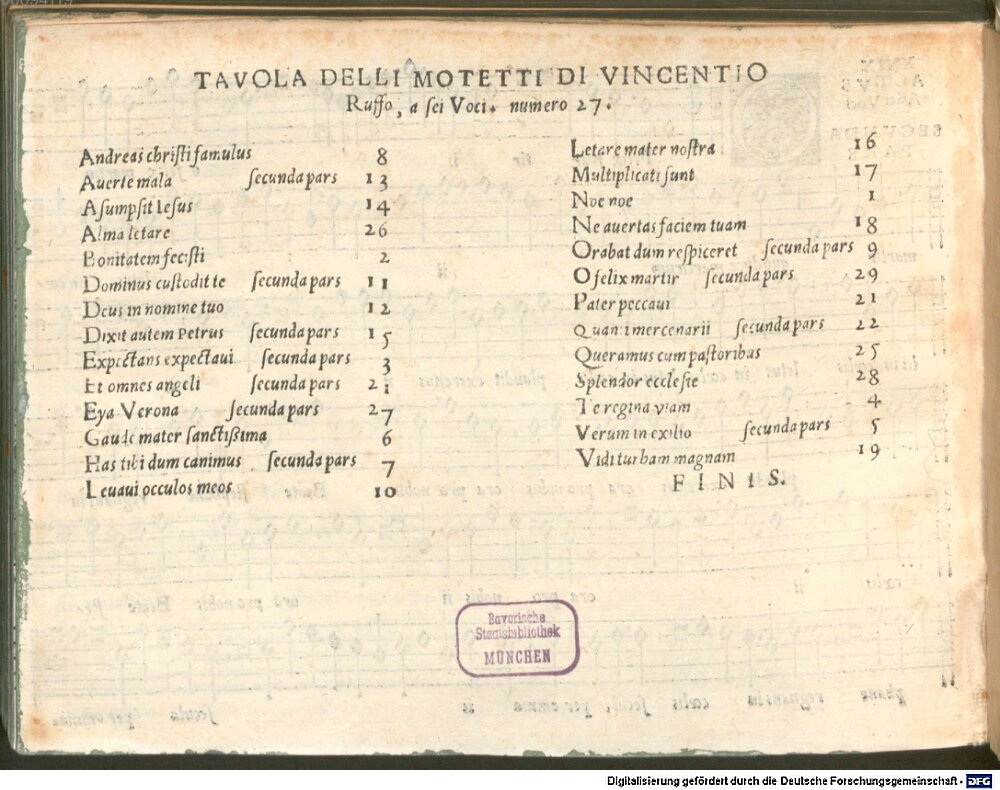 TAVOLA DELLI MOTETTI DI VINCENTIO
Ruffo, a sei Voci. numero 27.
Andreas christi famulus 8
Auerte mala secunda pars 13
Asumpsit Iesus 14
Alma letare 26
Bonitatem fecisti 2
Dominus custodit te secunda pars 11
Deus in nomine tuo 12
Dixit autem Petrus secunda pars 15
Expectans expectaui secunda pars 3
Et omnes angeli secunda pars 21
Eya Verona secunda pars 27
Gaude mater sanctißima 6
Has tibi dum canimus secunda pars 7
Leuaui occulos meos 10
Letare mater nostra 16
Multiplicati sunt 17
Noe noe 1
Ne auertas faciem tuam 18
Orabat dum respiceret secunda pars 9
O felix martir secunda pars 29
Pater peccaui 21
Quanti mercenarii secunda pars 22
Queramus cum pastoribus 25
Splendor ecclesie 28
Te regina viam 4
Verum in exilio secunda pars 5
Vidi turbam magnam 19
FINIS.
Bayerische
Staatsbibliothek
MÜNCHEN
Digitalisierung gefördert durch die Deutsche Forschungsgemeinschaft - DFG